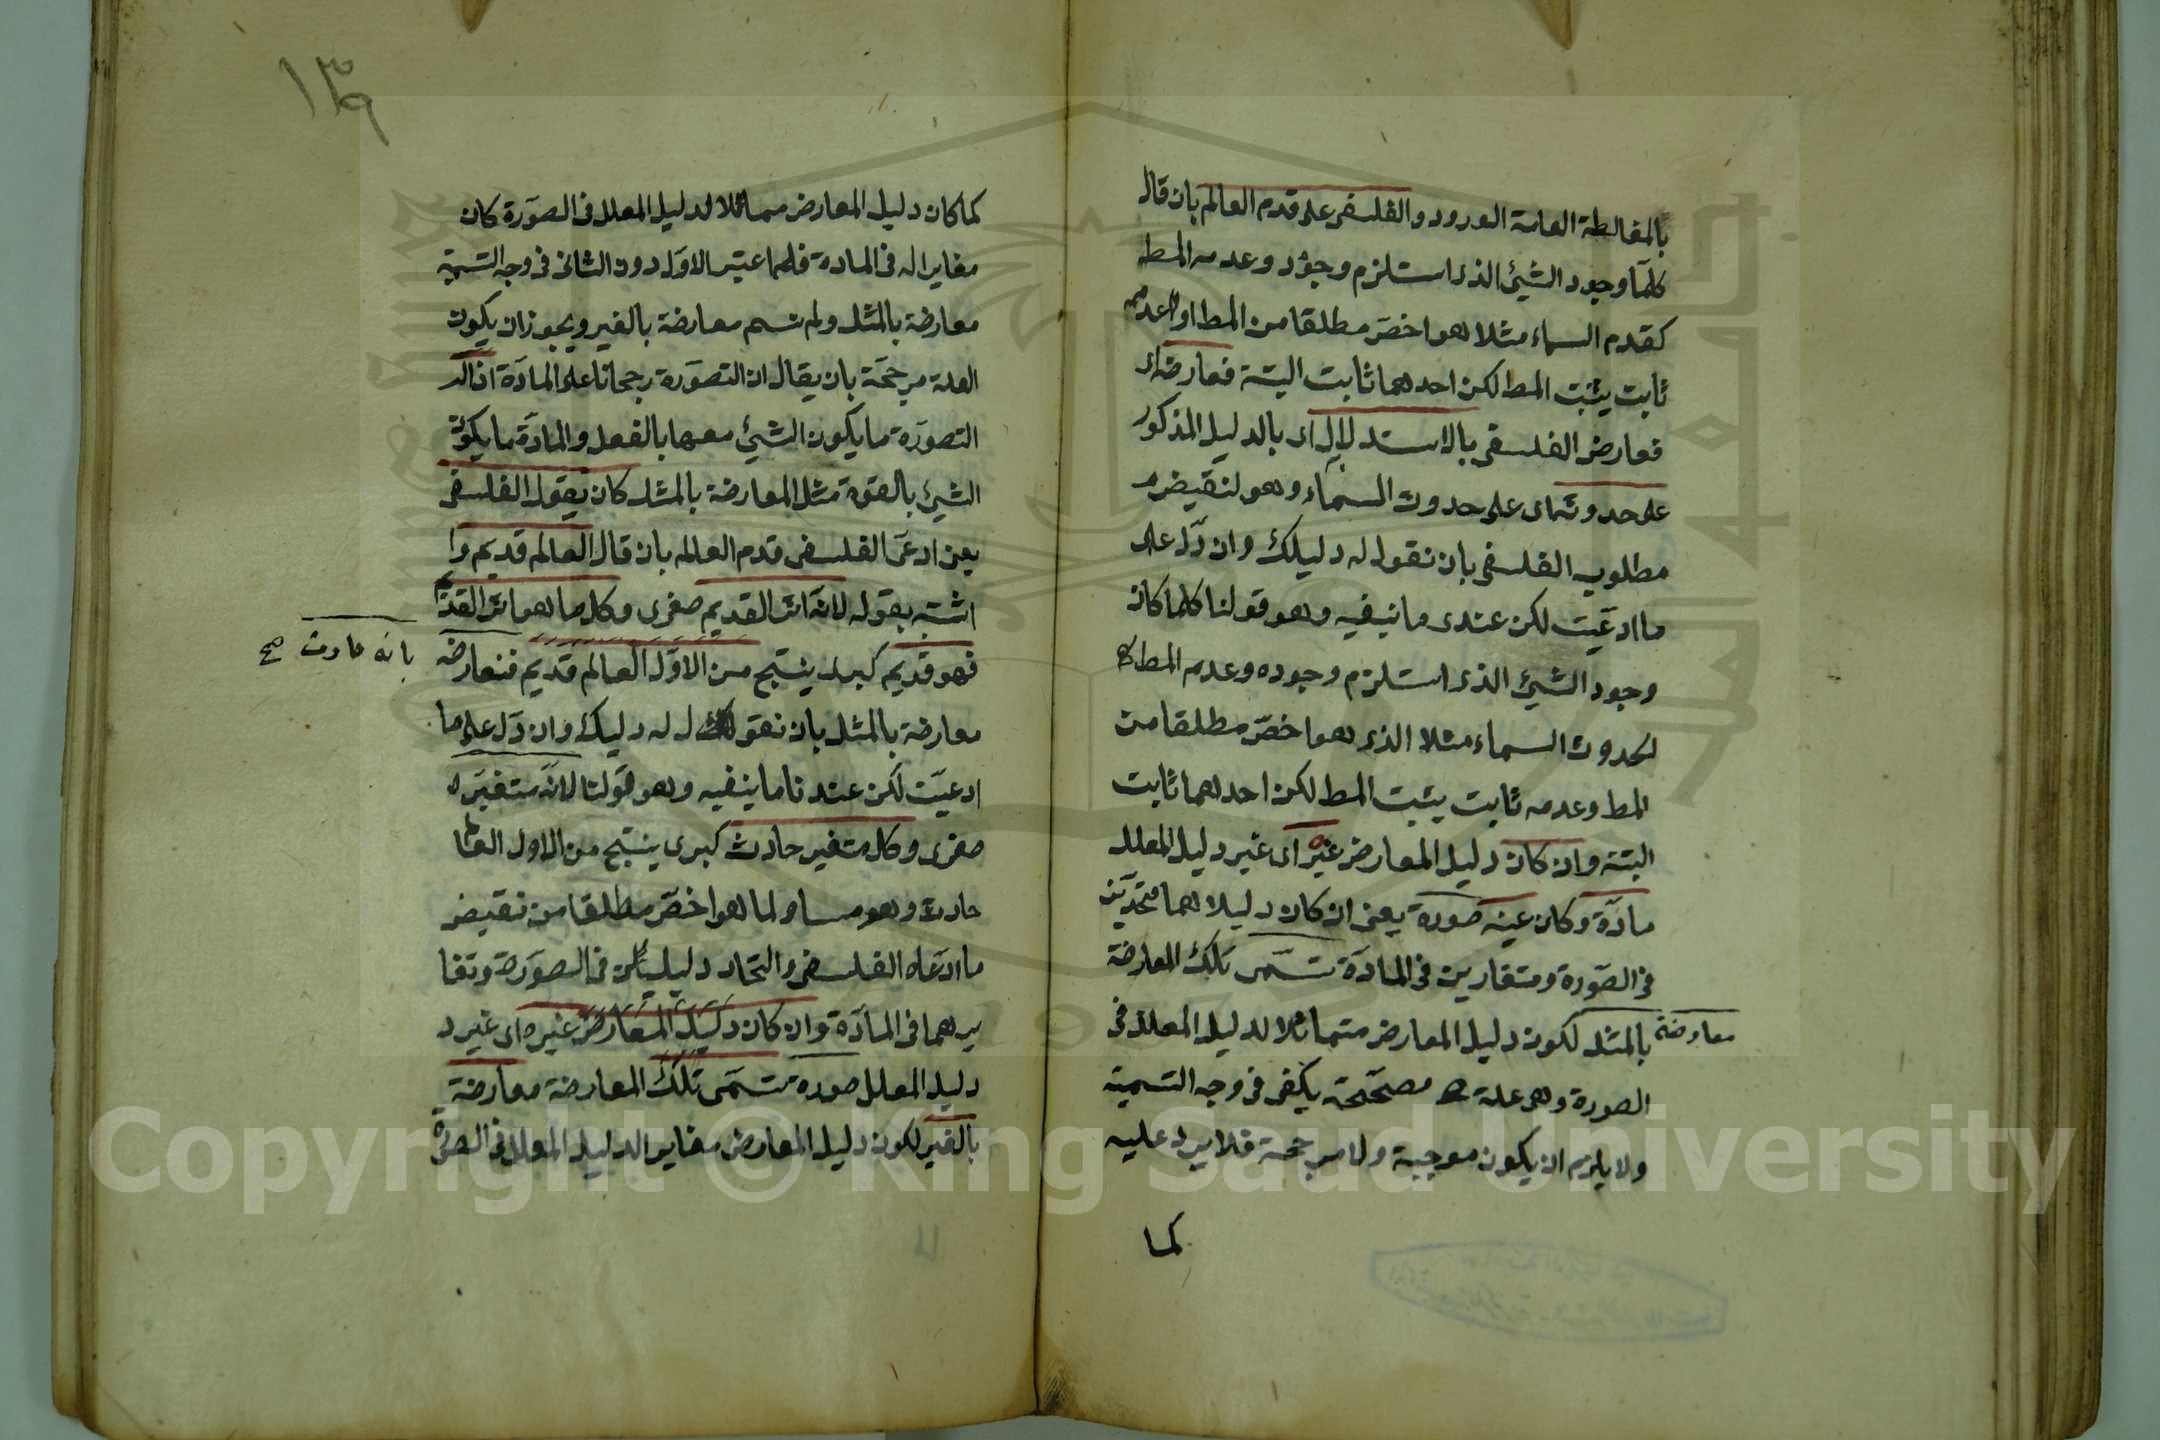 بالمغالطة العامة الورود والفلسفى على قدم العالم بان قال
كلما وجود الشيئ الذى استلزم وجود وعدمه المط
كقدم السماء مثلا هو اخص مطلقا من المط او عدمه
ثابت يثبت المط لكن احدهما ثابت البتة فعارض
فعارض الفلسفى بالاستدلال اى بالدليل المذكور
على حدوثها اى على حدوث السماء وهو نقيض
مطلوب الفلسفى بان نقول له دليلك وان دل على
ما ادعيت لكن عندى ما ينفيه وهو قولنا كلما كان
وجود الشيئ الذى استلزم وجوده وعدمه المط
لحدوث السماء مثلا الذى هو اخص مطلقا من
المط وعدمه ثابت يثبت المط لكن احدهما ثابت
البتة وان كان دليل المعارض غيره اى غير دليل المعلل
مادة وكان عينه صورة يعنى ان كان دليلاهما متحدين
فى الصورة ومتغايرين فى المادة تسمى تلك المعارضة
معارضة بالمثل لكون دليل المعارض متماثلا لدليل المعلل فى
الصورة وهى علة مصححة يكفى فى وجه التسمية
ولا يلزم ان يكون موجبة ولا مرجحة فلا يرد عليه
كما
١٣٩
كما كان دليل المعارض مماثلا لدليل المعلل فى الصورة كان
مغايرا له فى المادة فلم اعتبر الاول دون الثانى فى وجه التسمية
معارضة بالمثل ولم تسم معارضة بالغير ويجوز ان يكون
العلة مرجحة بان يقال ان التصورة رجحانا على المادة اذ
التصورة ما يكون الشيئ معها بالفعل والمادة ما يكون
الشيئ بالقوة مثل المعارضة بالمثل كان يقول الفلسفى
يعنى ادعى الفلسفى قدم العالم بان قال العالم قديم وا
اثبته بقوله لانه اثر القديم صغرى وكل ما هو اثر القديم
فهو قديم كبرى ينتج من الاول العالم قديم فنعارضه
بانه حادث صح
معارضة بالمثل بان نقول له دليلك وان دل على ما
ادعيت لكن عندنا ما ينفيه وهو قولنا لانه متغير
صغرى وكل متغير حادث كبرى ينتج من الاول العالم
حادث وهو مساو لما هو اخص مطلقا من نقيض
ما ادعاه الفلسفى والتحاد دليلين فى الصورة وتغا
يرهما فى المادة وان كان دليل المعارض غيره اى غير د
دليل المعلل صورة تسمى تلك المعارضة معارضة
بالغير لكون دليل المعارض مغايرا لدليل المعلل فى الصورة
Copyright © King Saud University